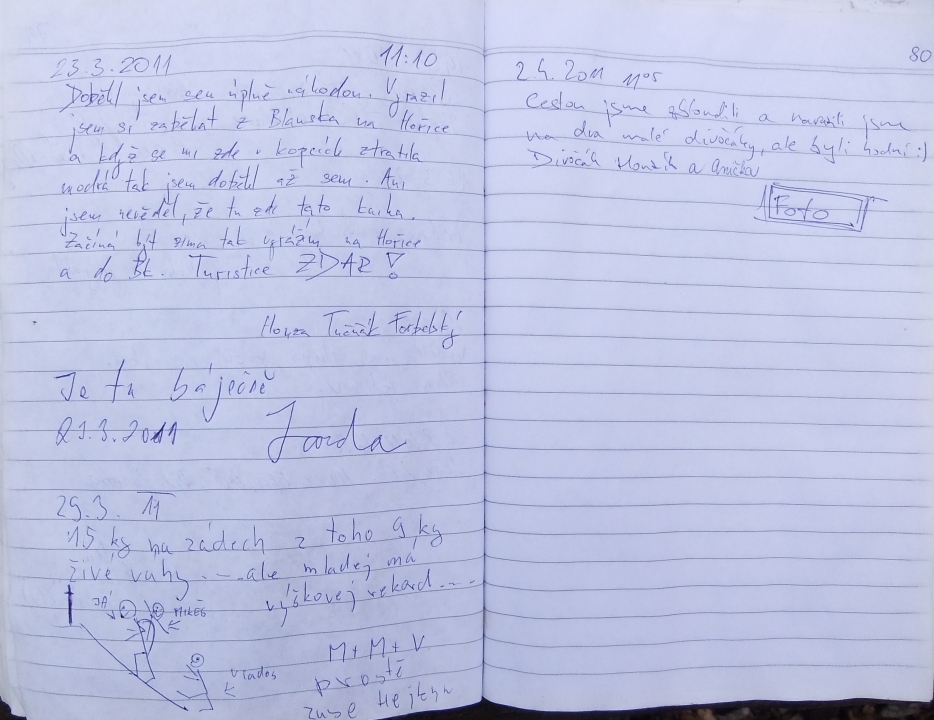 23.3.2011 11:10
Doběhl jsem sem úplně náhodou. Vyrazil
jsem si zaběhat z Blanska na Hořice
a když se mi zde v kopcích ztratila
modrá tak jsem doběhl až sem. Ani
jsem nevěděl, že tu zde tato knika.
Začíná být zima tak vyrážím na Hořice
a do Bk. Turistice ZDAR!
Honza Tučňák
Je tu báječně
23.3.2011 Jarda
29.3. 11
15 kg na zádech z toho 9 kg
živé váhy ... ale mladej má
výškovej rekord ....
JÁ
MIKEŠ
Vlados
M+M+V
prostě
zase
80
2.4.2011 11⁰⁵
Cestou jsme zbloudili a narazili jsme
na dva malé divočáky, ale byli hodní :)
Divočák Honzík a Anička
Foto